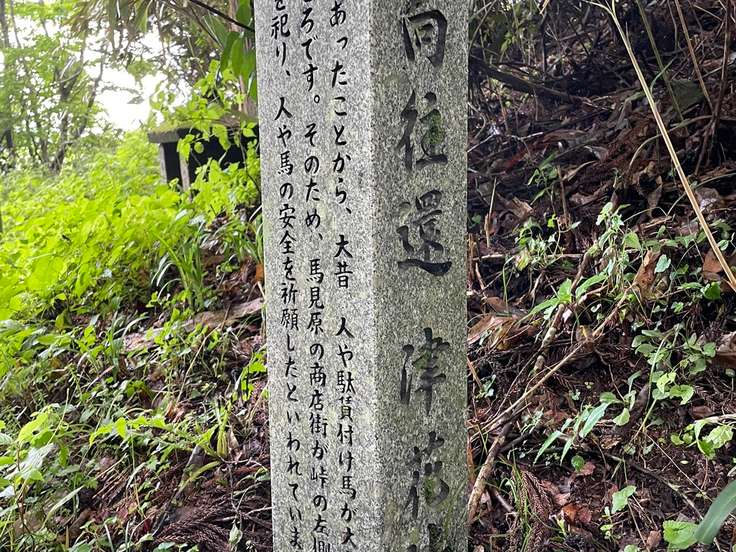 向往還 津花
あったことから、大昔 人や駄賃付け馬が大
ろです。そのため、馬見原の商店街が峠の左側
を祀り、人や馬の安全を祈願したといわれていま